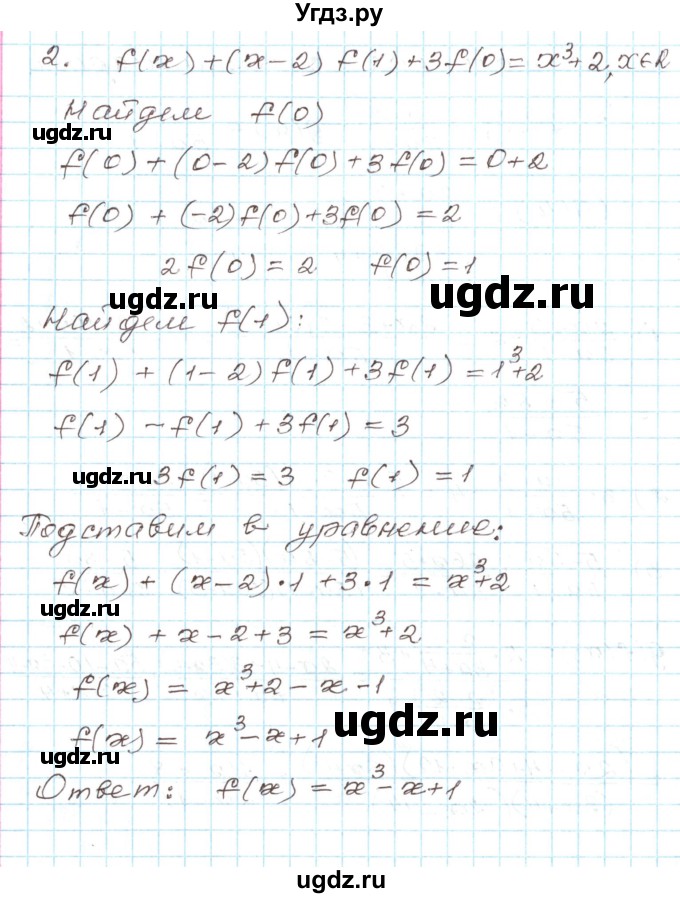 Угдз.ру
2. f(x)+(x-2) f(1)+3f(0)= x³+2, x∈R
Найдем f(0)
ugdz.ru
f(0)+(0-2)f(0)+3f(0)=0+2
f(0)+(-2)f(0)+3f(0)=2
2f(0)=2 f(0)=1
ugdz.ru ugdz.ru
Найдем f(1):
f(1)+(1-2)f(1)+3f(1)=1³+2
f(1)-f(1)+3f(1)=3
ugdz.ru 3f(1)=3 f(1)=1
Подставим в уравнение:
f(x)+(x-2)·1+3·1=x³+2
ugdz.ru
f(x)+x-2+3=x³+2
f(x)= x³+2-x-1
ugdz.ru
f(x)= x³-x+1
ugdz.ru
Ответ: f(x)=x³-x+1
ugdz.ru